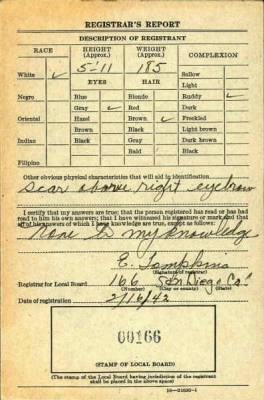 REGISTRAR'S REPORT
DESCRIPTION OF REGISTRANT
RACE HEIGHT (Approx.) WEIGHT (Approx.) COMPLEXION
5-11 185
White ✓ EYES HAIR Sallow
Light
Negro Blue Blonde Ruddy ✓
Gray ✓ Red Dark
Oriental Hazel Brown ✓ Freckled
Brown Black Light brown
Indian Black Gray Dark brown
Bald Black
Filipino
Other obvious physical characteristics that will aid in identification
Scar above right eyebrow
I certify that my answers are true; that the person registered has read or has had
read to him his own answers; that I have witnessed his signature or mark and that
all of his answers of which I have knowledge are true, except as follows:
None to my knowledge
E. Tompkins
(Signature of registrar)
Registrar for Local Board 166 San Diego Cal
(Number) (City or county) (State)
Date of registration 2/16/42
00166
(STAMP OF LOCAL BOARD)
(The stamp of the Local Board having jurisdiction of the registrant
shall be placed in the above space)